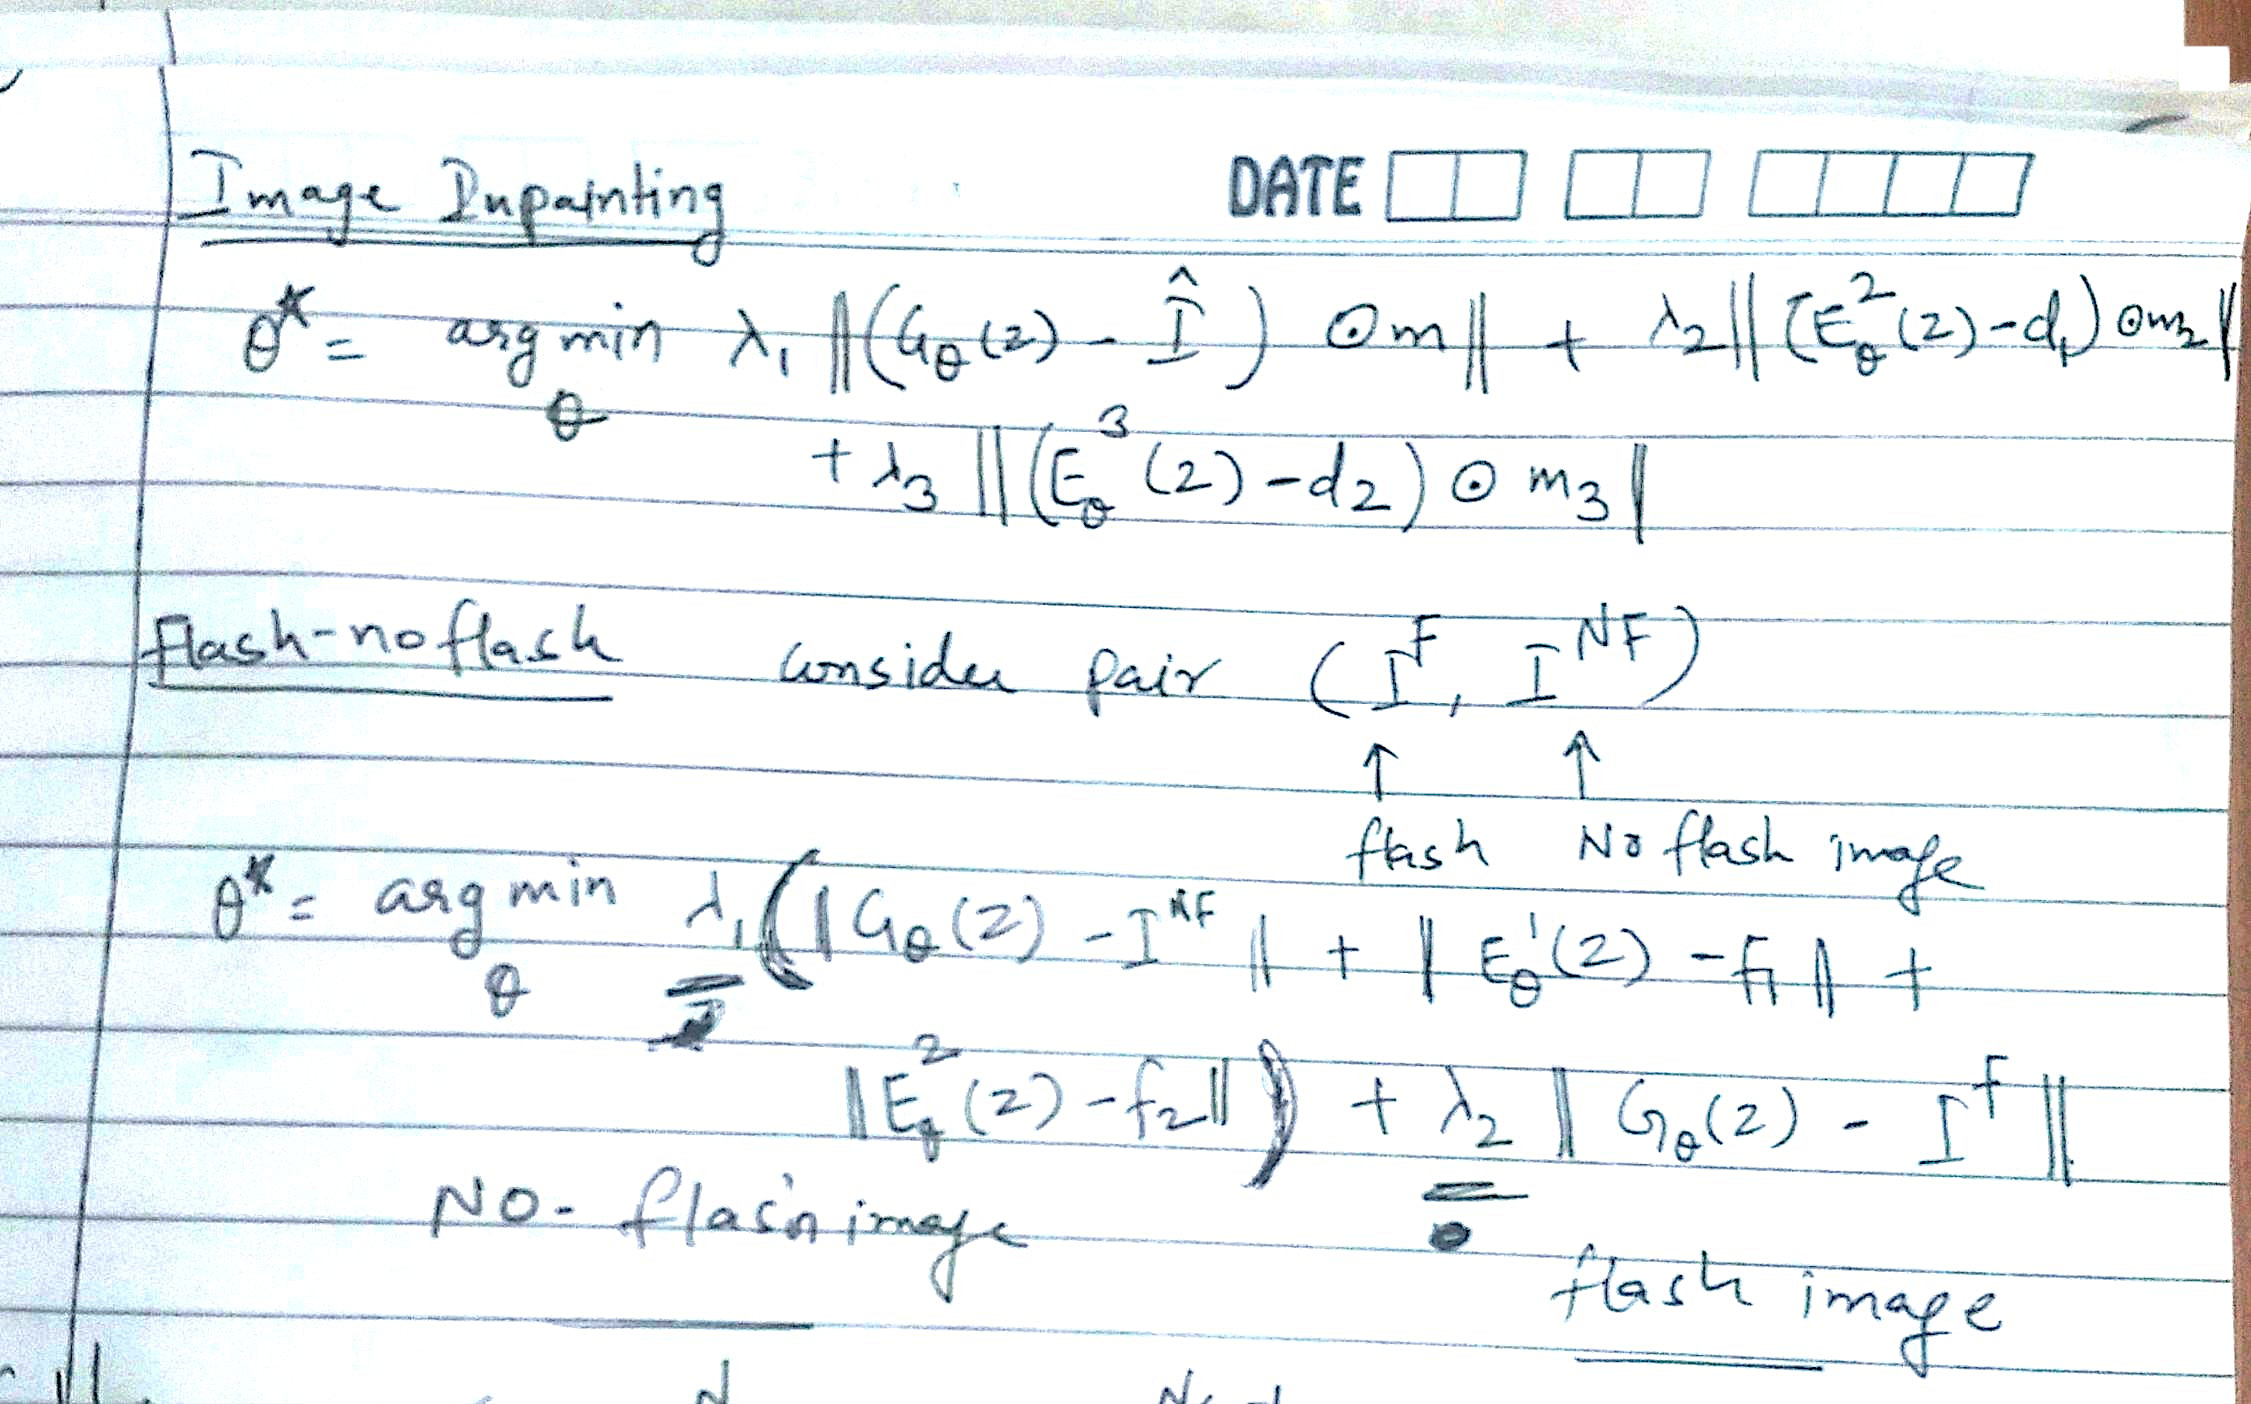 Image Inpainting DATE
θ* = arg min λ₁ ‖(G_θ(z) - Î) ⊙ m‖ + λ₂‖(E_θ²(z) - d₁) ⊙ m₂‖
θ
+ λ₃ ‖(E_θ³(z) - d₂) ⊙ m₃‖
flash-noflash consider pair (I^F, I^NF)
↑ ↑
flash No flash image
θ* = arg min λ₁(‖G_θ(z) - I^NF‖ + ‖E_θ¹(z) - f₁‖ +
θ
‖E_θ²(z) - f₂‖) + λ₂ ‖G_θ(z) - I^f‖
NO- flash image
flash image